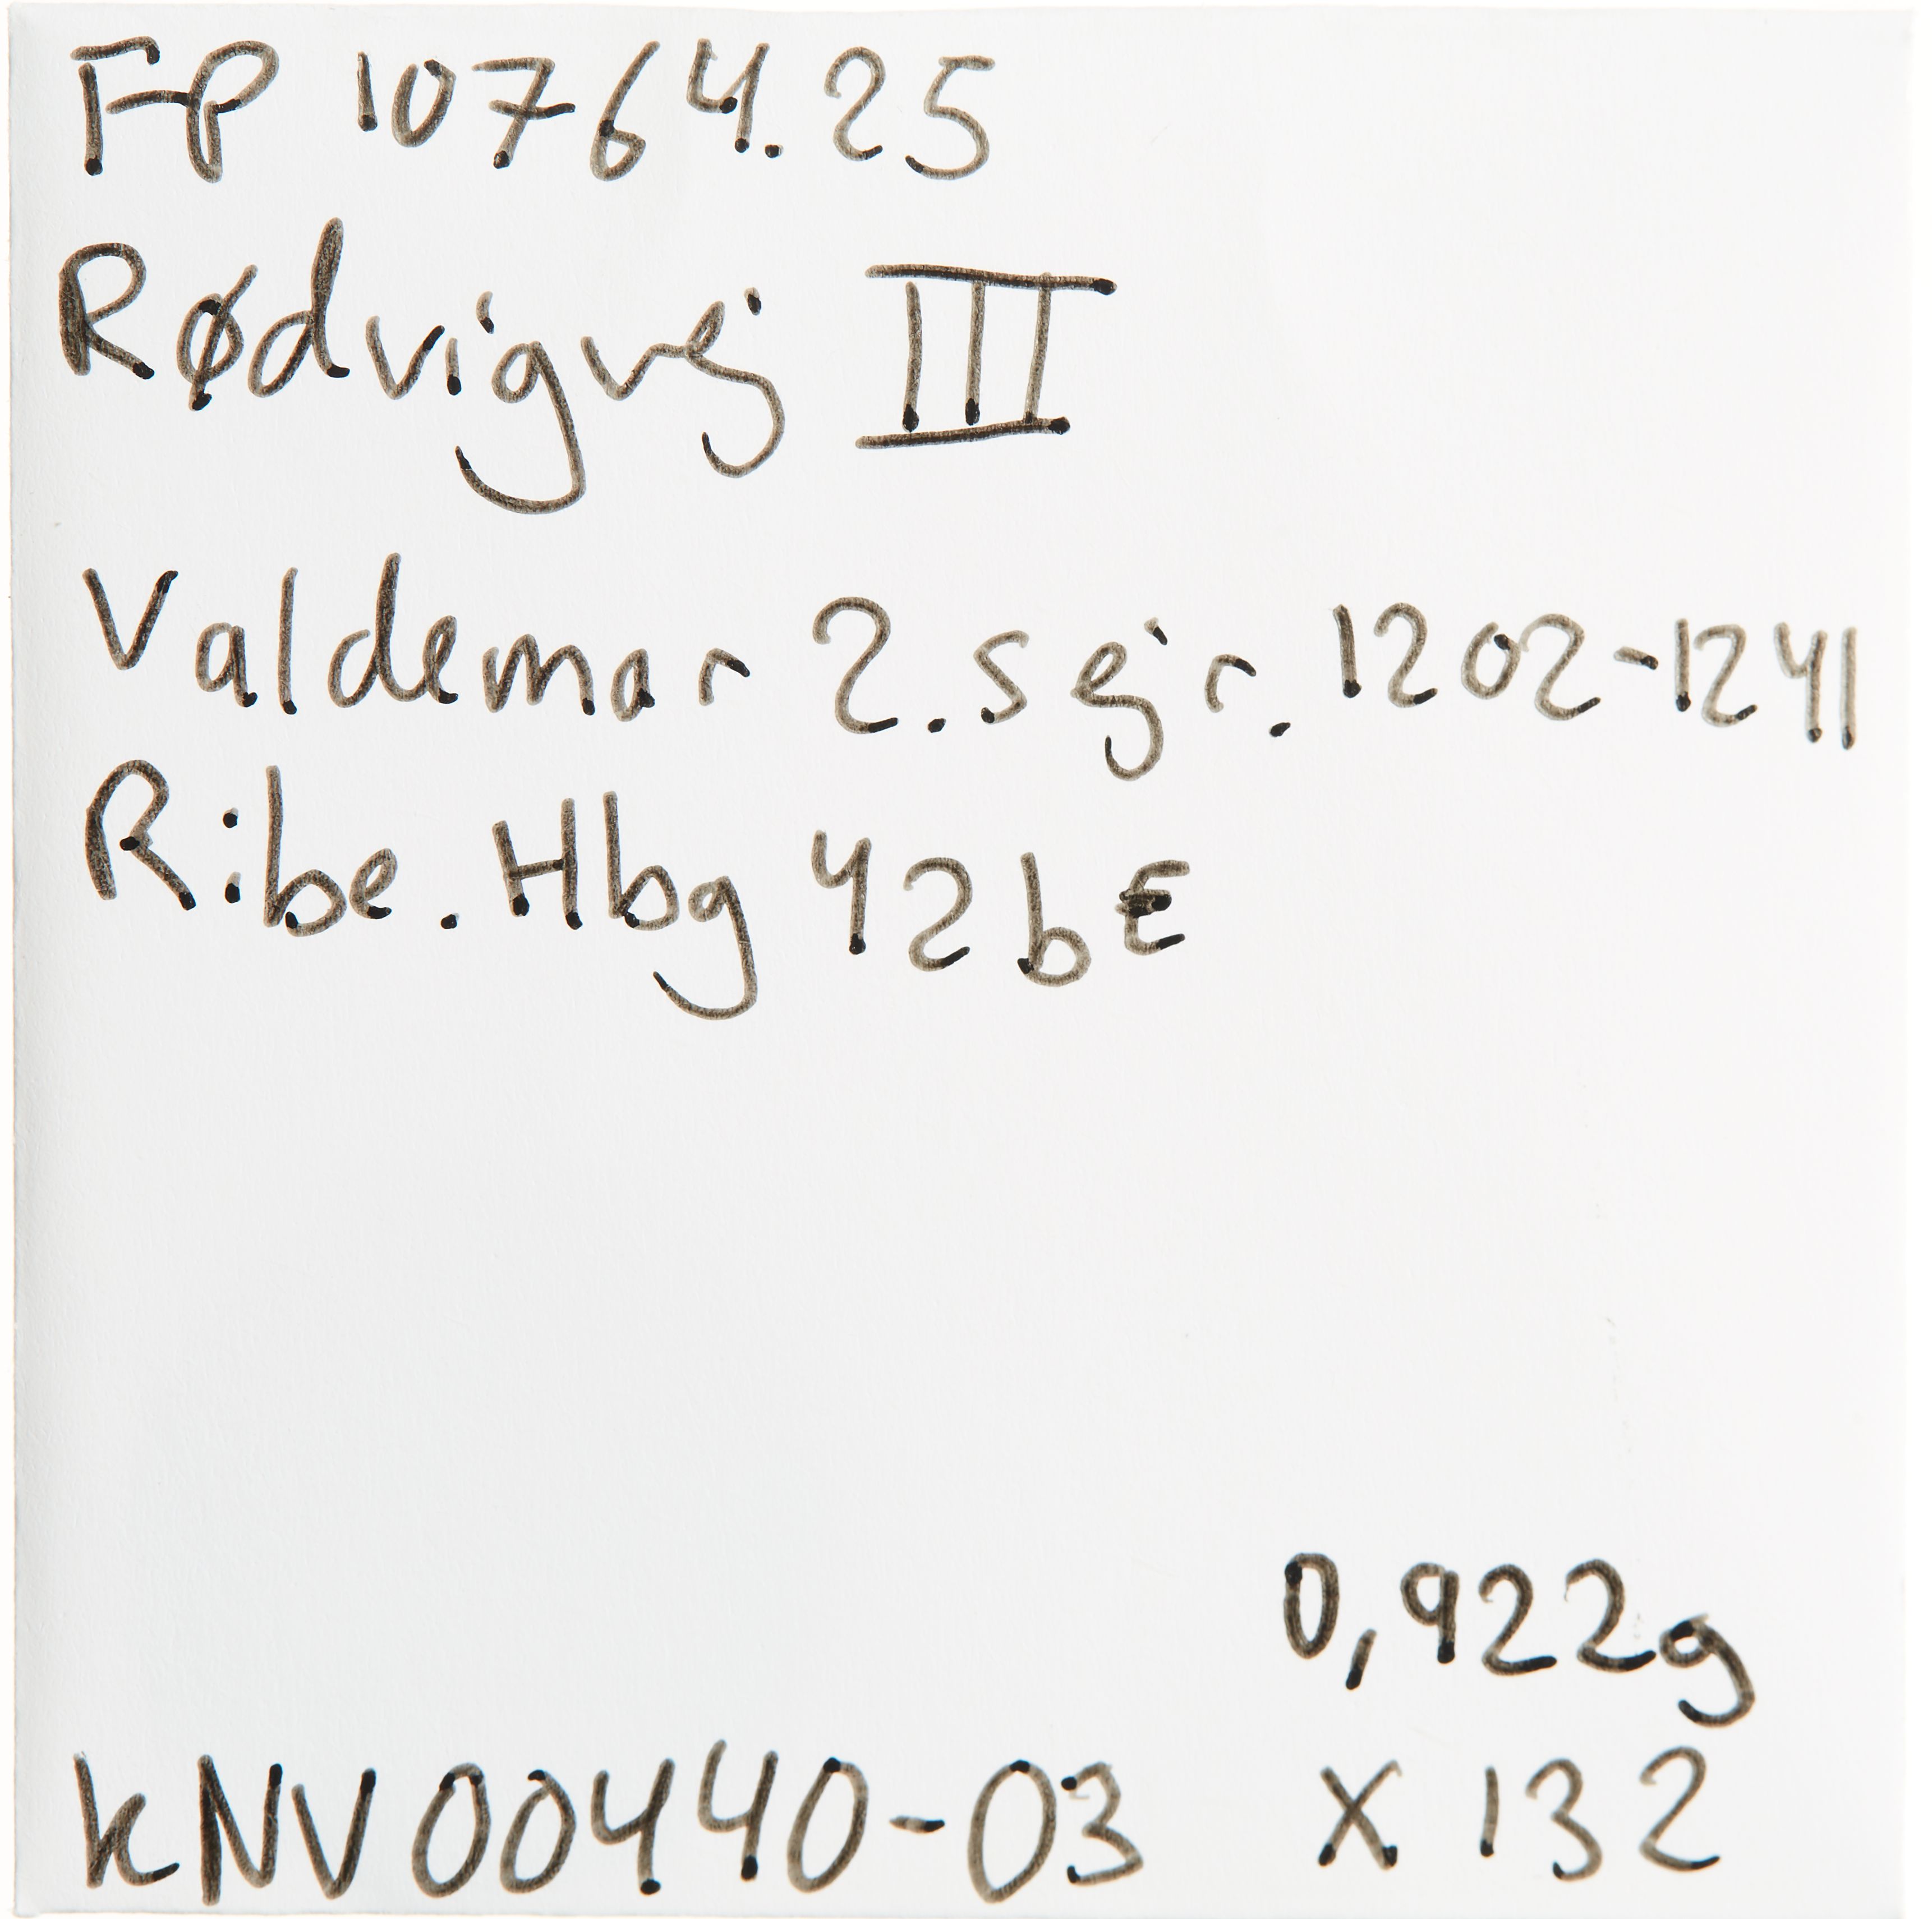 FP 10764.25
Rødvigvej III
Valdemar 2. sejr. 1202-1241
Ribe. Hbg 42bE
0,922g
KNV00440-03 X 132